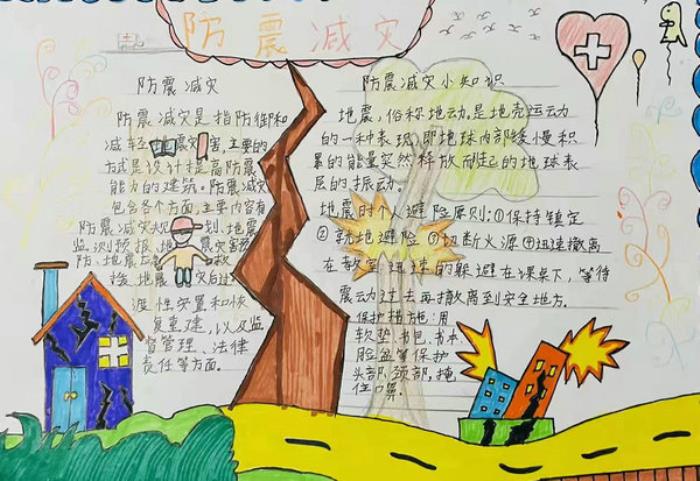 防震减灾
防震减灾
防震减灾是指防御和
减轻地震灾害,主要的
方式是设计提高防震
能力的建筑。防震减灾
包含各个方面,主要内容有
防震减灾规划、地震
监测预报、地震灾害预
防、地震应急救
援、地震灾后过
渡性安置和恢
复重建,以及监
督管理、法律
责任等方面。
防震减灾小知识
地震,俗称地动。是地壳运动
的一种表现,即地球内部缓慢积
累的能量突然释放而起的地球表
层的振动。
地震时个人避险原则:①保持镇定
②就地避险①切断火源④迅速撤离
在教室迅速的躲避在课桌下,等待
震动过去再撤离到安全地方.
保护措施:用
软垫、书包、书本、
脸盆等保护
头部、颈部,掩
住口鼻.